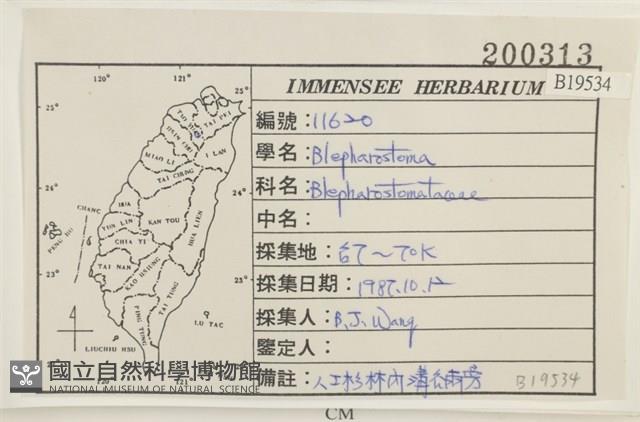 200313
IMMENSEE HERBARIUM
B19534
編號：11620
學名：Blepharostoma
科名：Blepharostomataceae
中名：
採集地：台7～70K
採集日期：1987.10.12
採集人：B.J. Wang
鑒定人：
備註：人工杉林內溝谷兩旁
B19534
120° 121°
25° 25°
TAI PEI
I LAN
MIAO LI
TAI CHUNG
24° 24°
CHANG HUA
YUN LIN
KAN TOU
HUA LIEN
PENG HU
CHIA YI
TAI NAN
KAO HSIUNG
23° 23°
TAI TUNG
PING TUNG
LU TAO
LIUCHIU HSU
國立自然科學博物館
NATIONAL MUSEUM OF NATURAL SCIENCE
CM